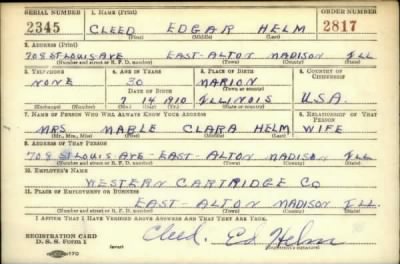 SERIAL NUMBER 1. NAME (Print) ORDER NUMBER
2345 CLEED EDGAR HELM 2817
(First) (Middle) (Last)
2. ADDRESS (Print)
708 ST LOUIS AVE EAST-ALTON MADISON ILL
(Number and street or R. F. D. number) (Town) (County) (State)
3. TELEPHONE 4. AGE IN YEARS 5. PLACE OF BIRTH 6. COUNTRY OF CITIZENSHIP
NONE 30 MARION
(Town or county)
DATE OF BIRTH
7 14 1910 ILLINOIS U.S.A.
(Exchange) (Number) (Mo.) (Day) (Yr.) (State or country)
7. NAME OF PERSON WHO WILL ALWAYS KNOW YOUR ADDRESS 8. RELATIONSHIP OF THAT PERSON
MRS MABLE CLARA HELM WIFE
(Mr., Mrs., Miss) (First) (Middle) (Last)
9. ADDRESS OF THAT PERSON
708 ST LOUIS AVE - EAST - ALTON MADISON ILL
(Number and street or R. F. D. number) (Town) (County) (State)
10. EMPLOYER'S NAME
WESTERN CARTRIDGE CO
11. PLACE OF EMPLOYMENT OR BUSINESS
EAST - ALTON MADISON ILL.
(Number and street or R. F. D. number) (Town) (County) (State)
I AFFIRM THAT I HAVE VERIFIED ABOVE ANSWERS AND THAT THEY ARE TRUE.
REGISTRATION CARD
D. S. S. Form 1 (over) Cleed. Ed Helm
(Registrant's signature)